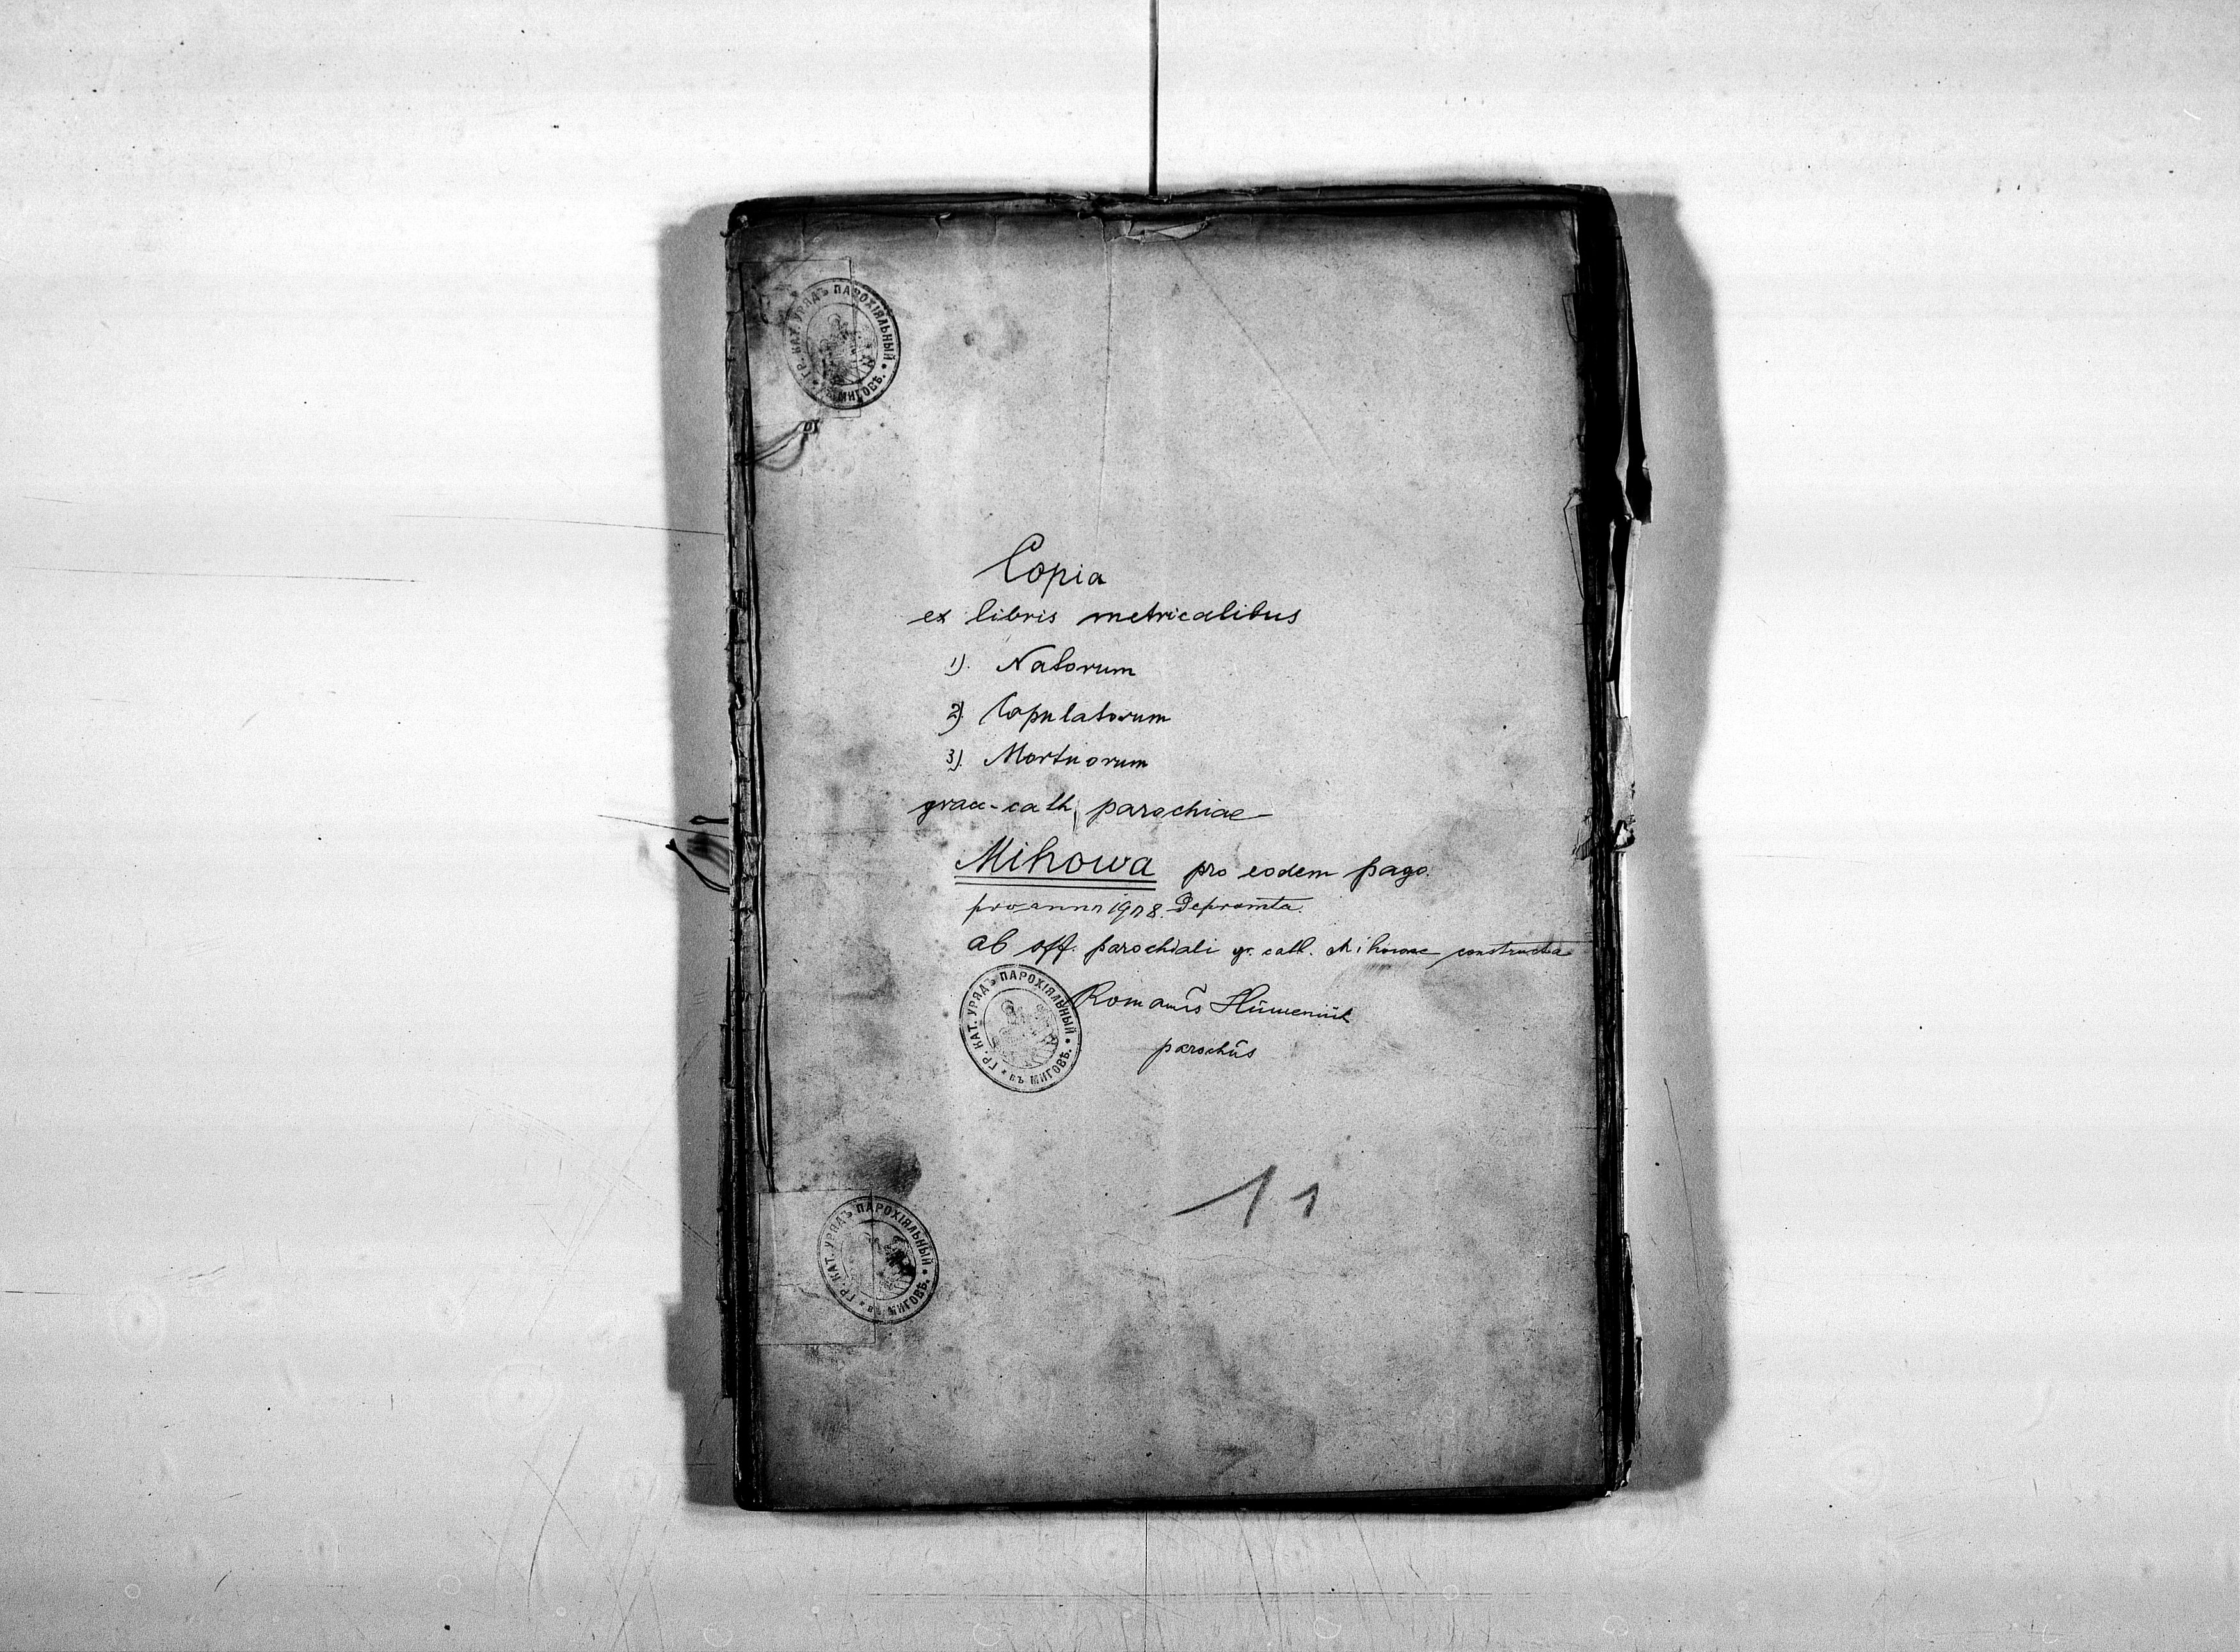 ГР. КАТ. УРЯДЪ ПАРОХІЯЛЬНЫЙ
въ МИГОВѢ.
Copia
ex libris metricalibus
1). Natorum
2). Copulatorum
3). Mortuorum
graec-cath. parochiae
Mihowa pro eodem pago.
pro anno 1918. Depromta.
ab off. parochiali gr. cath. Mihowae constructa
ГР. КАТ. УРЯДЪ ПАРОХІЯЛЬНЫЙ
въ МИГОВѢ.
Romanŭs
parochŭs
11
ГР. КАТ. УРЯДЪ ПАРОХІЯЛЬНЫЙ
въ МИГОВѢ.